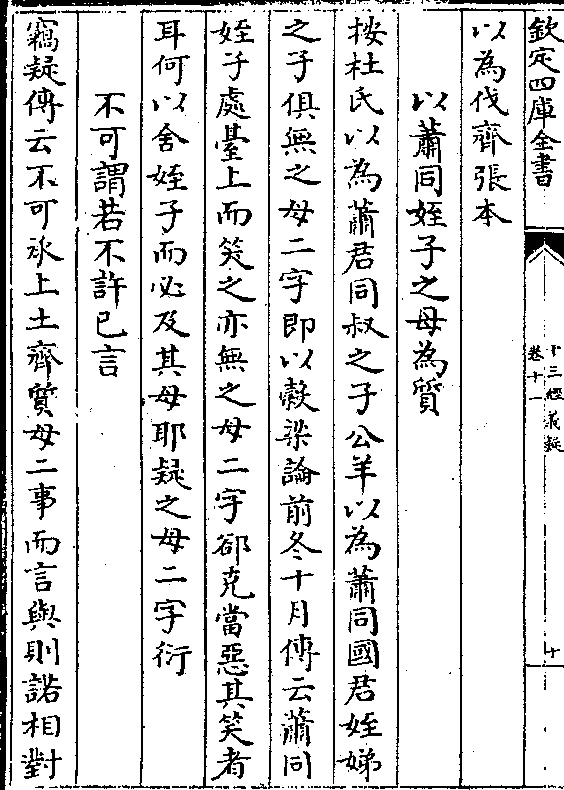 欽定四庫全書
十三經義疑
卷十一
十
以為伐齊張本
以蕭同姪子之母為質
按杜氏以為蕭君同叔之子公羊以為蕭同國君姪娣
之子俱無之母二字即以穀梁論前冬十月傳云蕭同
姪子處臺上而笑之亦無之母二字郤克當惡其笑者
耳何以舍姪子而必及其母耶疑之母二字衍
不可謂若不許已言
竊疑傳云不可承上土齊質母二事而言與則諾相對